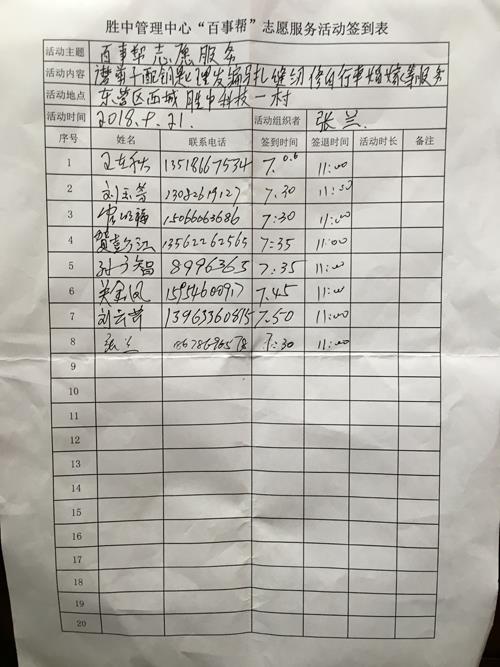 胜中管理中心“百事帮”志愿服务活动签到表
活动主题 百事帮志愿服务
活动内容 磨剪子配钥匙理发编马扎缝纫修自行车 等服务
活动地点 东营区西城胜中科技一村
活动时间 2018.8.21. 活动组织者 张兰.
序号 姓名 联系电话 签到时间 签退时间 活动时长 备注
1 13518667534 11:00
2 刘玉芳 13082619127 7.30
3 15066063686 7:30 11:00
4 贺彭江 13562262565 7:35 11:00
5 孙子智 8996365 7:35 11:00
6 关金凤 15954600917 7.45 11:00
7 刘云芹 13963360815 7.50 11:00
8 张兰 7:30 11:00
9
10
11
12
13
14
15
16
17
18
19
20